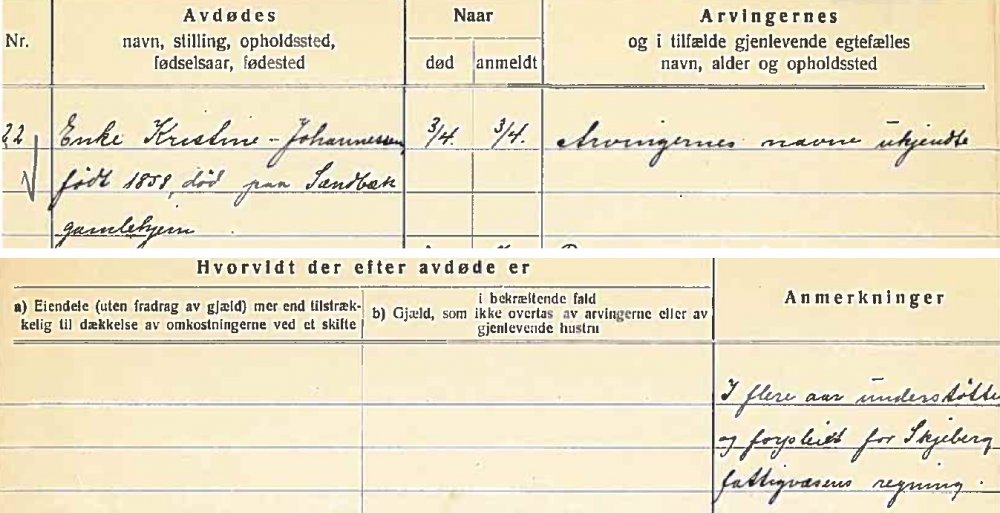 Nr.
Avdødes
navn, stilling, opholdssted,
fødselsaar, fødested
Naar
død
anmeldt
Arvingernes
og i tilfælde gjenlevende egtefælles
navn, alder og opholdssted
22
Enke Kristine - Johannessen,
født 1858, død paa Sandbæk
gamlehjem
3/4.
3/4.
Arvingernes navne ukjendte
Hvorvidt der efter avdøde er
a) Eiendele (uten fradrag av gjæld) mer end tilstræk-
kelig til dækkelse av omkostningerne ved et skifte
i bekræftende fald
b) Gjæld, som ikke overtas av arvingerne eller av
gjenlevende hustru
Anmerkninger
I flere aar understøttet
og forpleiet for Skjeberg
fattigvæsens regning.